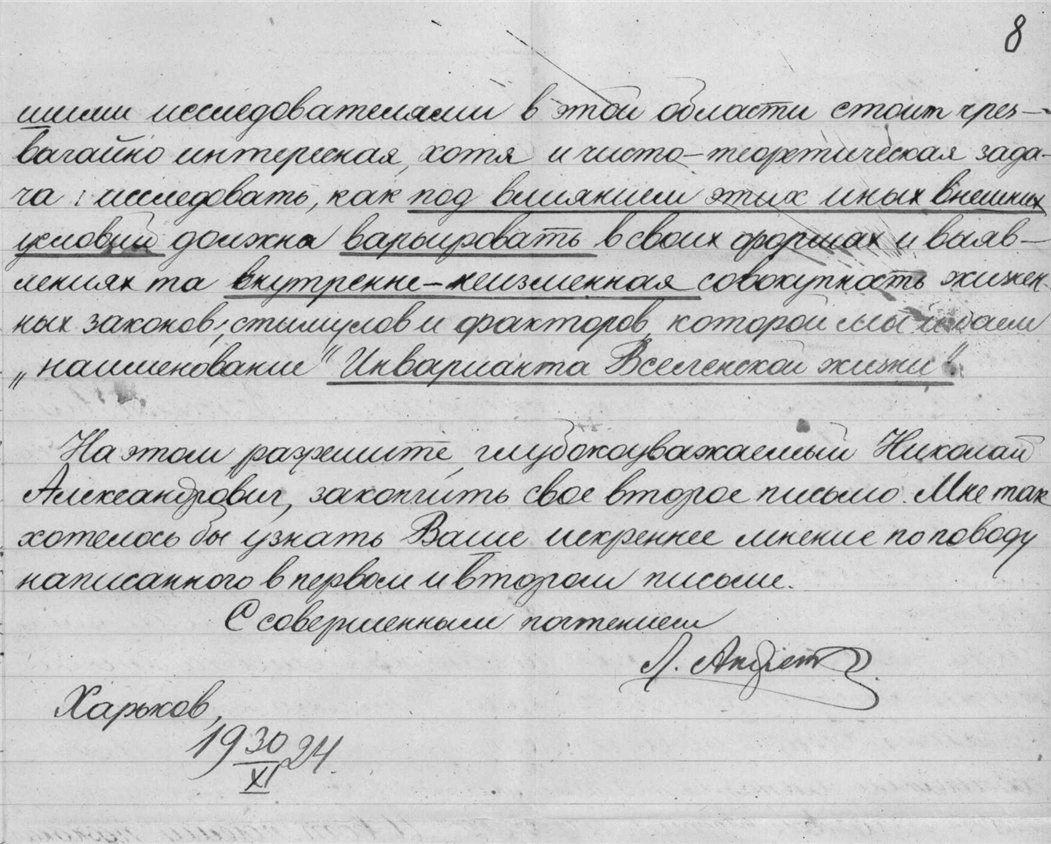 8
шими исследователями в этой области стоит чрез-
вычайно интересная, хотя и чисто-теоретическая зада-
ча: исследовать, как под влиянием этих иных внешних
условий должна варьировать в своих формах и выяв-
лениях та внутренне-неизменная совокупность жизнен-
ных законов, стымулов и факторов, которой мы
„наименование" "Инварианта Вселенской жизни".
На этом разрешите, глубокоуважаемый Николай
Александрович, закончить свое второе письмо. Мне так
хотелось бы узнать Ваше искреннее мнение по поводу
написанного в первом и втором письме.
С совершенным почтением
Л.
Харьков,
19 30/XI 24.